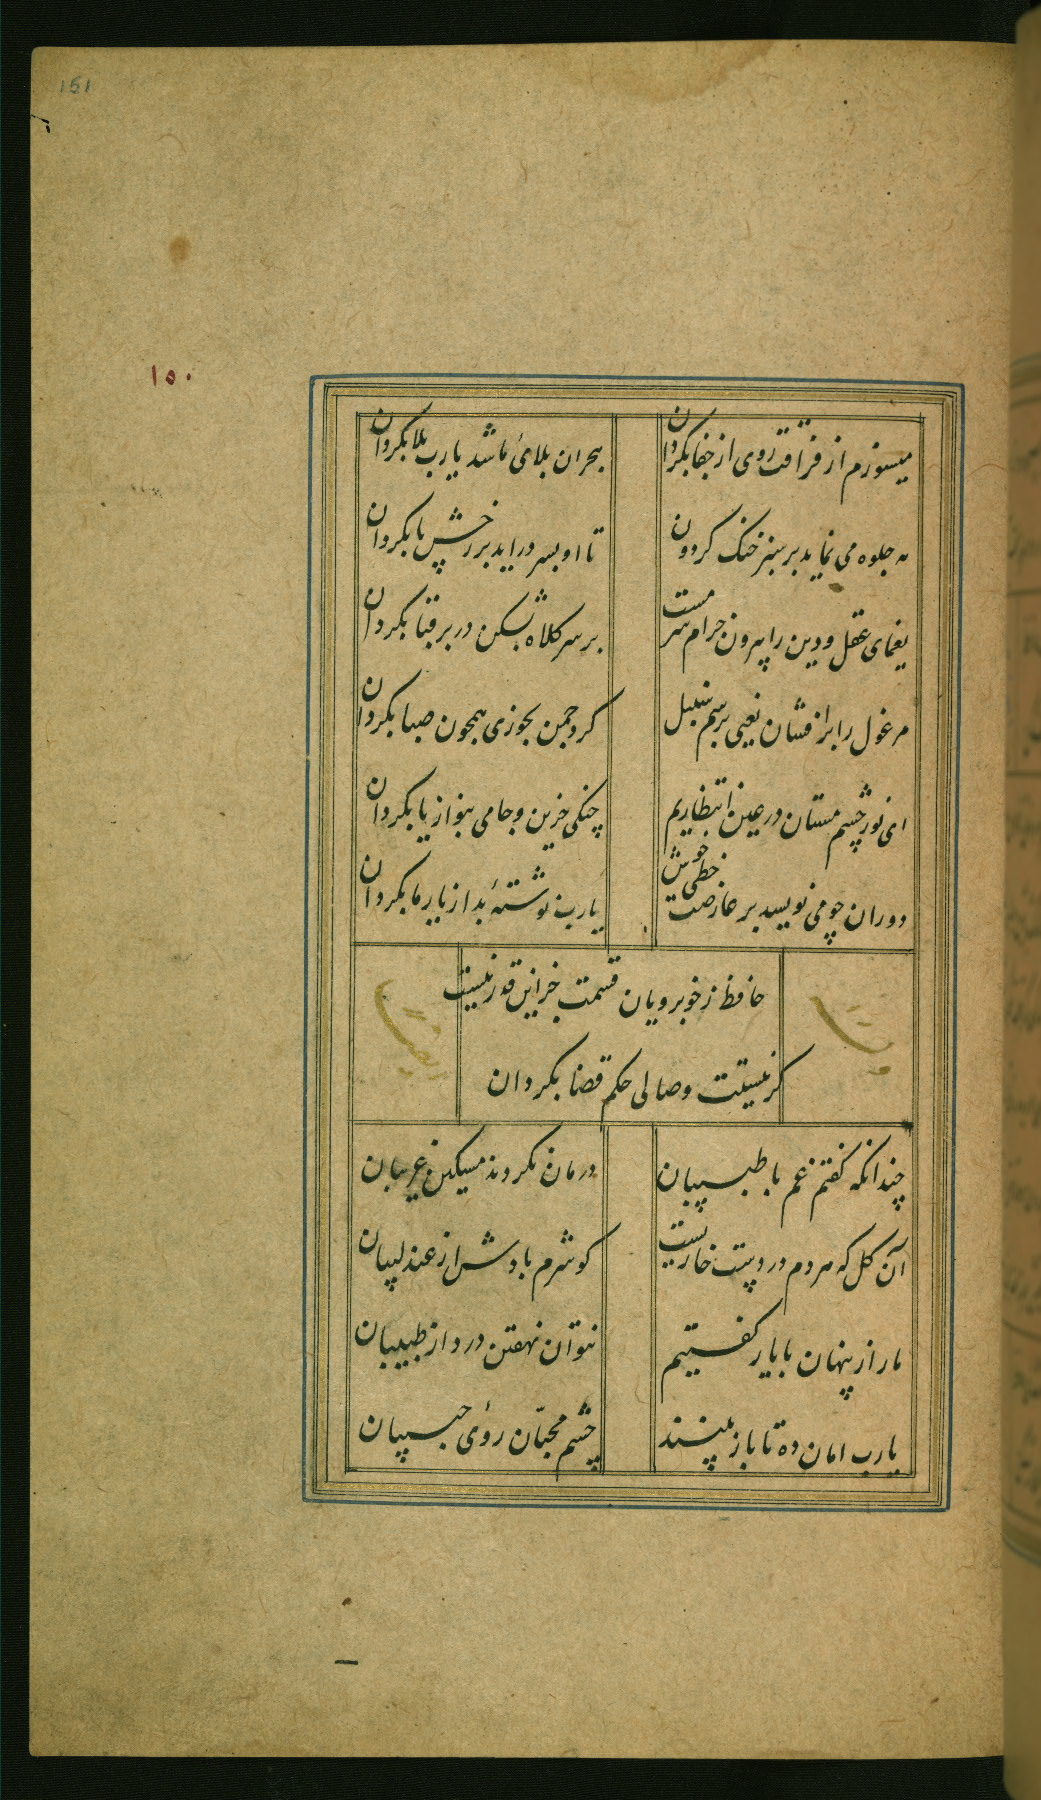 151
۱۵۰
میسوزم از فراقت روی از جفا بگردان
هجران بلای ما شد یارب بلا بگردان
مه جلوه می نماید بر سبز خنک گردون
تا او بسر دراید بر رخش پا بگردان
یغمای عقل و دین را بیرون خرام سرمست
بر سر کلاه بشکن در بر قبا بگردان
مرغول را برافشان یعنی برسم سنبل
گرد چمن بخوری همچون صبا بگردان
ای نور چشم مستان در عین انتظاریم
چنگی حزین و جامی بنواز یا بگردان
دوران چو می نویسد بر عارضت خطی خوش
یارب نوشتهٔ بد از یار ما بگردان
حافظ ز خوبرویان قسمت جز این قدر نیست
گر نیستت وصالی حکم قضا بگردان
چندانکه گفتم غم با طبیبان
درمان نکردند مسکین غریبان
آن گل که هر دم در دست خاریست
گو شرم بادش از عندلیبان
ما راز پنهان با یار گفتیم
نتوان نهفتن درد از طبیبان
یارب امان ده تا باز بیند
چشم محبّان روی حبیبان